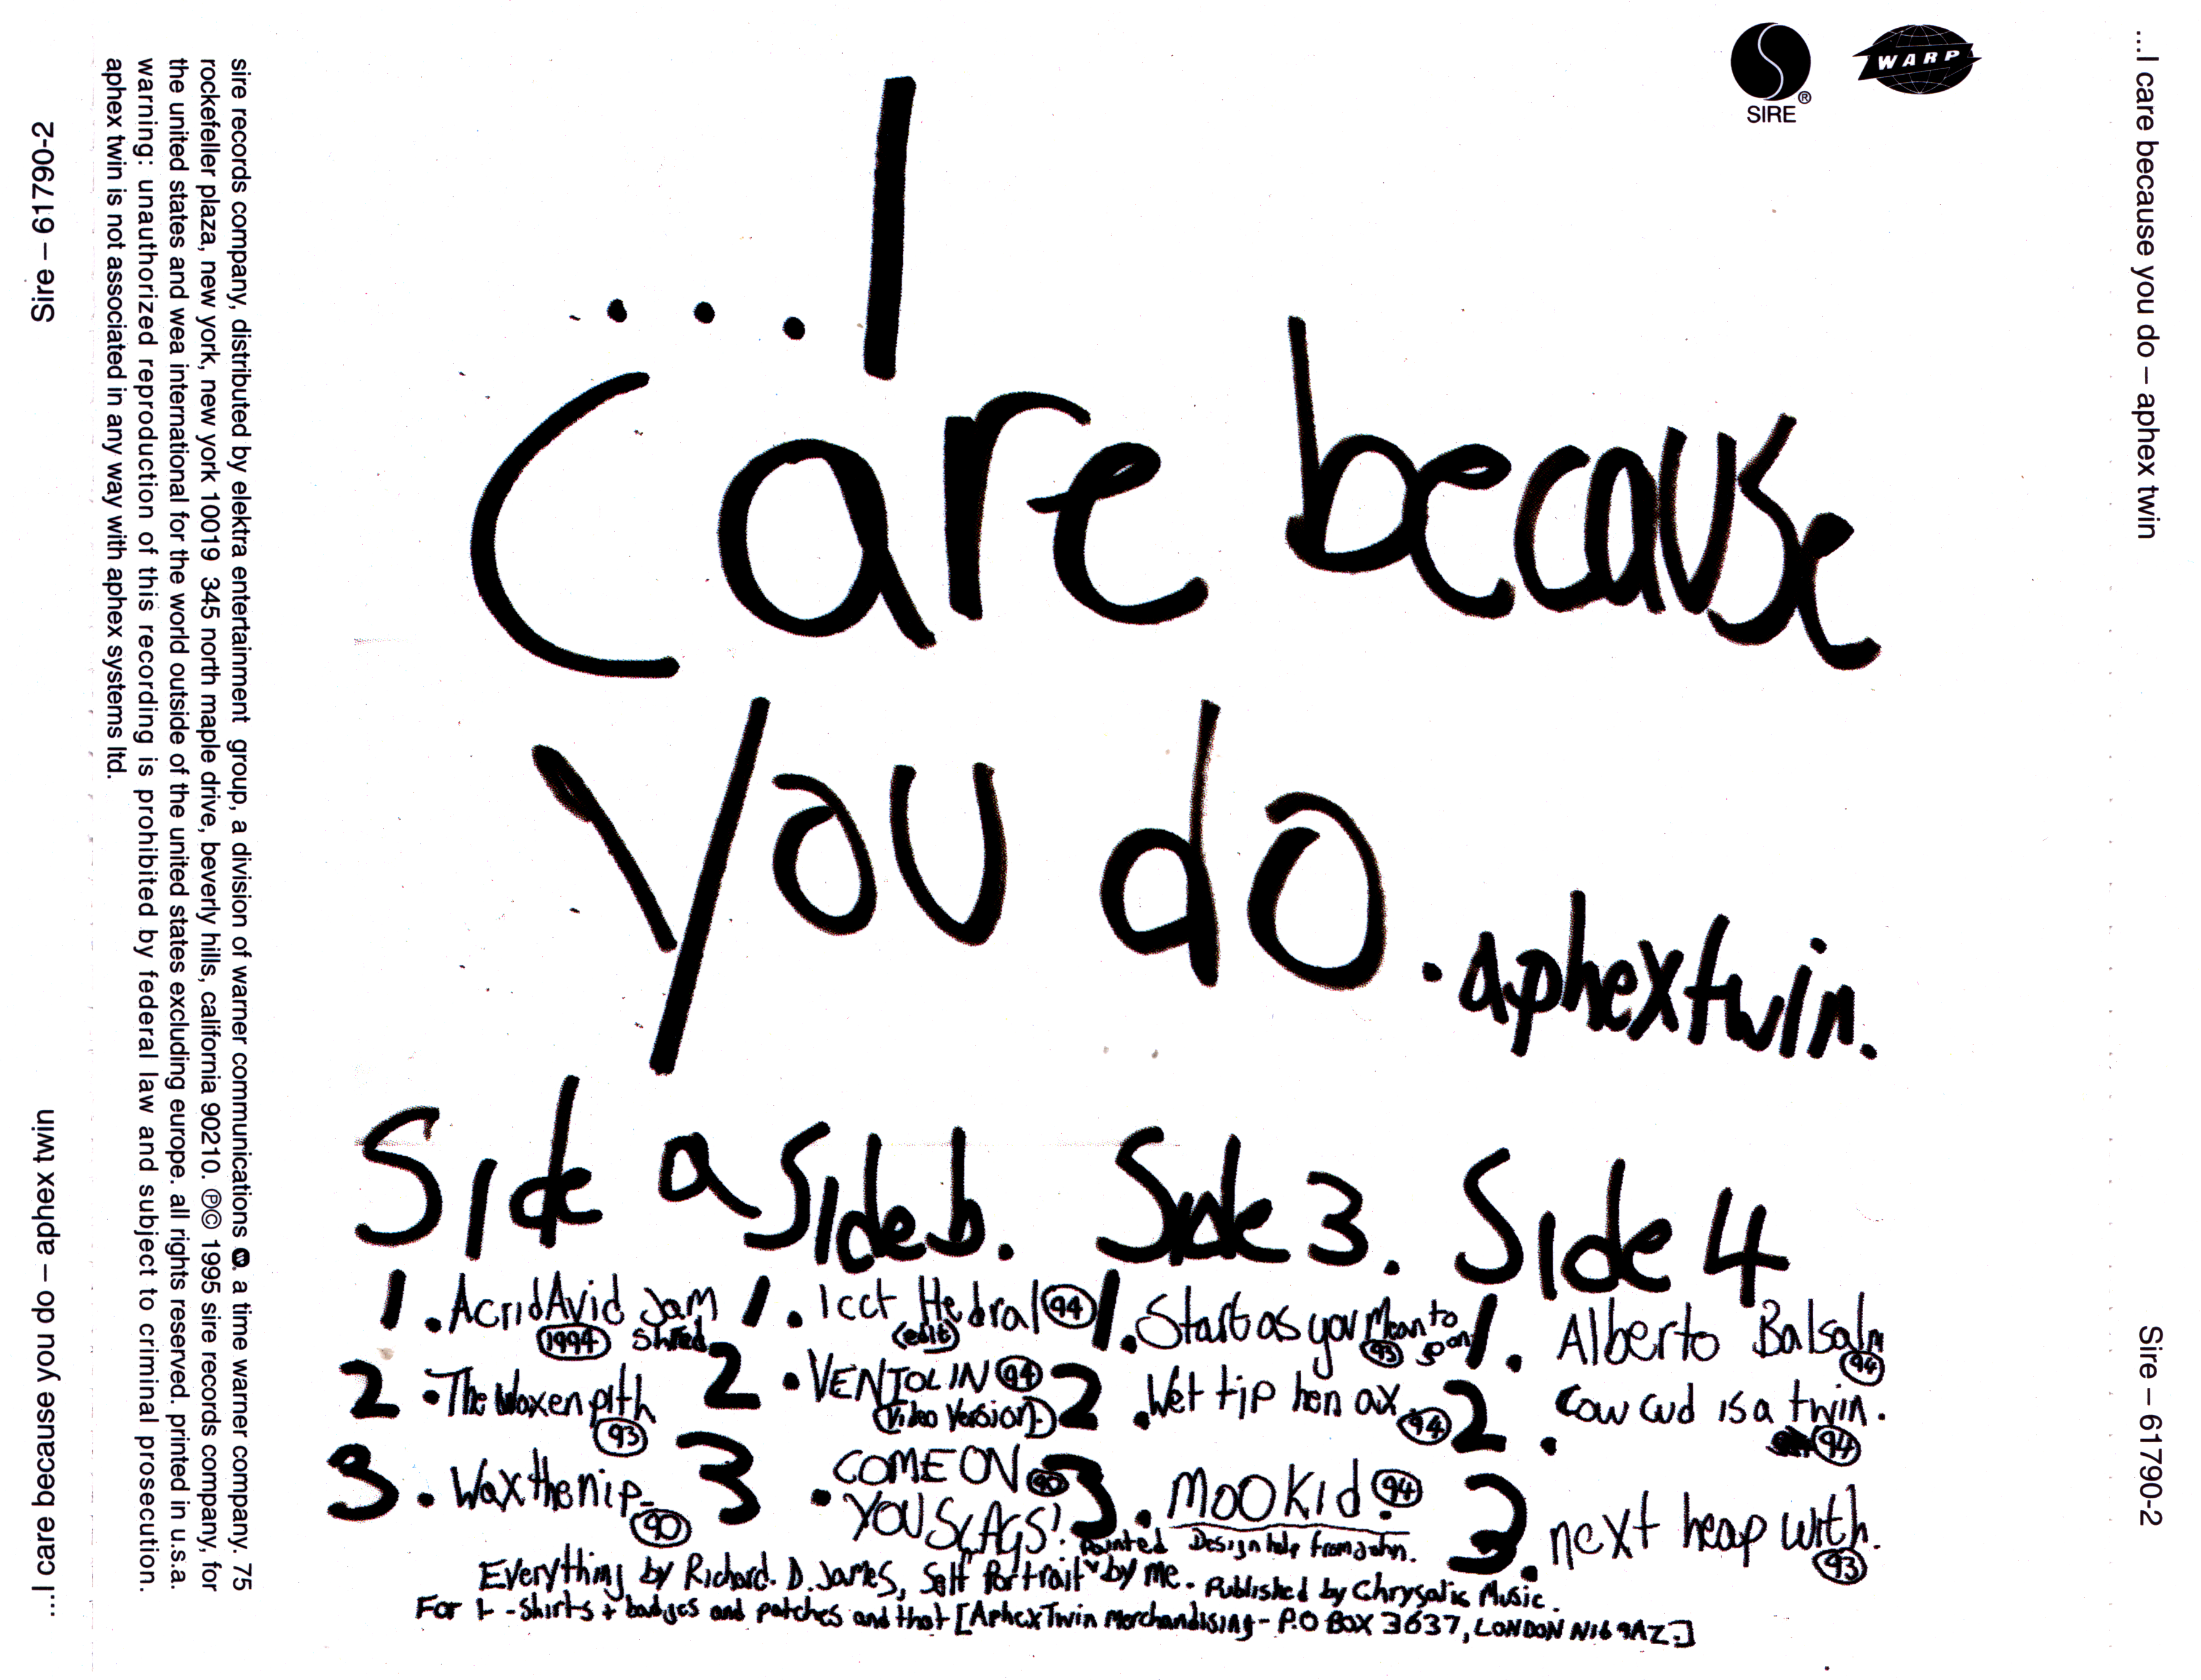 SIRE®
WARP
...I
care because
you do. aphextwin.
Side a
1. AcridAvid Jam
Shred
1994
2. The Waxen pith
93
3. Wax the nip
90
Side b.
1. Icct Hedral 94
(edit)
2. VENTOLIN 94
(Video Version)
3. COME ON 90
YOU SLAGS!
Side 3.
1. Start as you Mean to
go on 93
2. Wet tip hen ax 94
3. MOOKid 94
Side 4
1. Alberto Balsalm
94
2. Cow cud is a twin.
94
3. next heap with.
93
Everything by Richard. D. James, Self Portrait painted by me. Design help from John. Published by Chrysalis Music.
For t-shirts + badges and patches and that [Aphex Twin Merchandising - P.O BOX 3637, LONDON N16 9AZ.]
sire records company, distributed by elektra entertainment group, a division of warner communications, a time warner company. 75
rockefeller plaza, new york, new york 10019 345 north maple drive, beverly hills, california 90210. ℗© 1995 sire records company, for
the united states and wea international for the world outside of the united states excluding europe. all rights reserved. printed in u.s.a.
warning: unauthorized reproduction of this recording is prohibited by federal law and subject to criminal prosecution.
aphex twin is not associated in any way with aphex systems ltd.
...I care because you do – aphex twin
Sire – 61790-2
...I care because you do – aphex twin
Sire – 61790-2